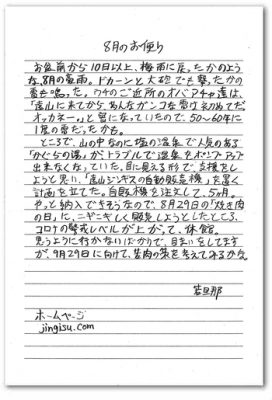 8月のお便り
お盆前から10日以上、梅雨に戻ったかのよ
うな、8月の豪雨。ドカーンと大砲でも撃ったかの
雷も鳴った。ウチのご近所のオバアチャ達は、
「遠山に来てから、あんなガンコな雷は初めてだ
オッカネー。」と口々になっていたので、50〜60年に
1度の雷だったかも。
ところで、山の中なのに塩の温泉で人気のある
「かぐらの湯」がトラブルで温泉をポンプアップ
出来なくなっていた。目に見える形で、支援をし
ようと思い、「遠山ジンギスの自動販売機」を置く
計画を立てた。自販機を注文して、5ヶ月。
やっと納入できそうなので、8月29日の「焼き肉
の日」に、ニギニギしく販売しようとしたところ、
コロナの警戒レベルが上がって、休館。
思うように行かないばかりで、目まいをしてます
が、9月29日に向けて、焼肉の策を考えてみるかな。
若旦那
ホームページ
jingisu.com